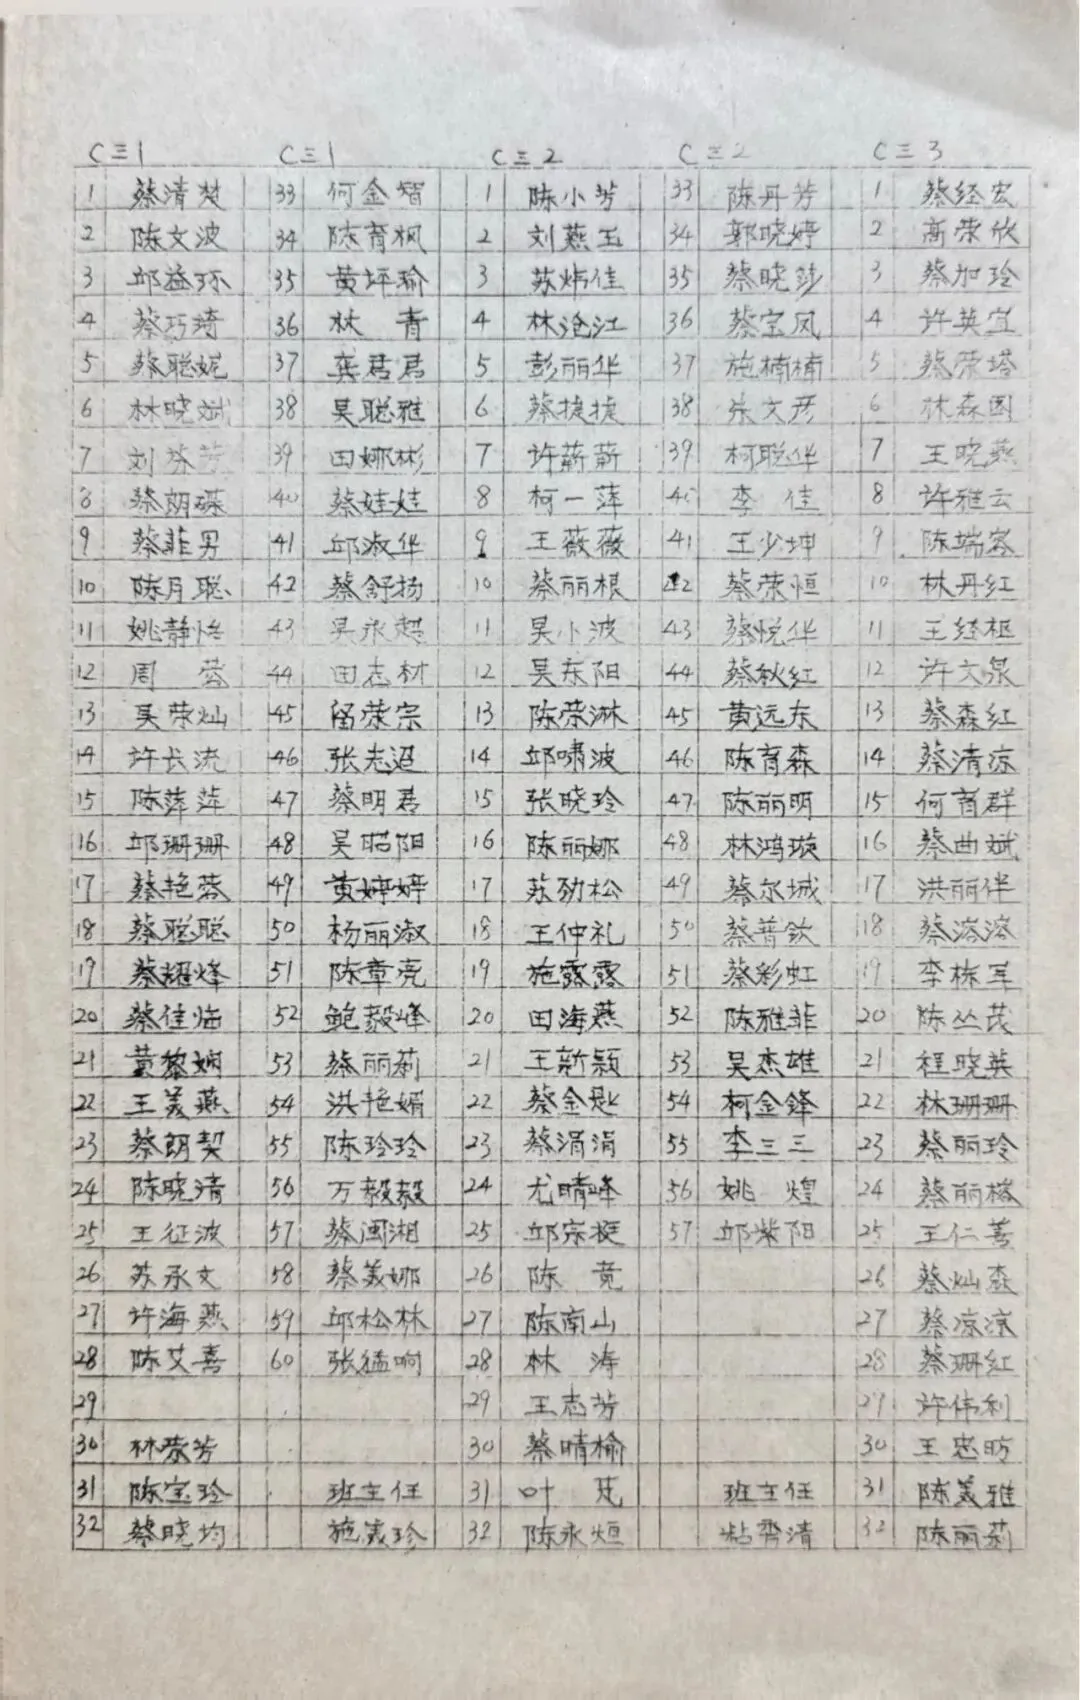 C三1 C三1 C三2 C三2 C三3
1 蔡清楚 33 何金智 1 陈小芳 33 陈丹芳 1 蔡经宏
2 陈文波 34 陈育枫 2 刘燕玉 34 郭晓婷 2 高荣欣
3 邱益环 35 黄坪瑜 3 苏炜佳 35 蔡晓莎 3 蔡加玲
4 蔡巧琦 36 林青 4 林沧江 36 蔡宝凤 4 许英宜
5 蔡聪妮 37 龚君君 5 彭丽华 37 施楠楠 5 蔡荣塔
6 林晓斌 38 吴聪雅 6 蔡捷捷 38 朱文彦 6 林森图
7 刘芬芳 39 田娜彬 7 许蔪蔪 39 柯聪华 7 王晓燕
8 蔡朗碟 40 蔡娃娃 8 柯一萍 40 李佳 8 许雅云
9 蔡菲男 41 邱淑华 9 王薇薇 41 王少坤 9 陈端容
10 陈月聪 42 蔡舒扬 10 蔡丽根 42 蔡荣恒 10 林丹红
11 姚静怡 43 吴永超 11 吴小波 43 蔡悦华 11 王经枢
12 周蓉 44 田志材 12 吴东阳 44 蔡秋红 12 许文泉
13 吴荣灿 45 留荣宗 13 陈荣淋 45 黄远东 13 蔡森红
14 许长流 46 张志迢 14 邱啸波 46 陈育森 14 蔡清凉
15 陈萍萍 47 蔡明君 15 张晓玲 47 陈丽明 15 何育群
16 邱珊珊 48 吴昭阳 16 陈丽娜 48 林鸿璇 16 蔡曲斌
17 蔡艳蓉 49 黄婷婷 17 苏劲松 49 蔡尔城 17 洪丽伴
18 蔡聪聪 50 杨丽淑 18 王仲礼 50 蔡普钦 18 蔡溶溶
19 蔡耀烽 51 陈章亮 19 施露露 51 蔡彩虹 19 李栋军
20 蔡佳临 52 鲍毅峰 20 田海燕 52 陈雅菲 20 陈丛茂
21 黄黎娴 53 蔡丽莉 21 王新颖 53 吴杰雄 21 程晓英
22 王美燕 54 洪艳媚 22 蔡金匙 54 柯金锋 22 林珊珊
23 蔡朗契 55 陈玲玲 23 蔡涓涓 55 李三三 23 蔡丽玲
24 陈晓清 56 万毅毅 24 尤晴峰 56 姚煌 24 蔡丽榕
25 王征波 57 蔡闽湘 25 邱宗挺 57 邱紫阳 25 王仁善
26 苏永文 58 蔡美娜 26 陈竟 26 蔡灿森
27 许海燕 59 邱松林 27 陈南山 27 蔡凉凉
28 陈艾喜 60 张猛响 28 林涛 28 蔡珊红
29 29 王志芳 29 许伟利
30 林荣芳 30 蔡晴榆 30 王忠昉
31 陈宝玲 班主任 31 叶芃 班主任 31 陈美雅
32 蔡晓均 施美珍 32 陈永烜 粘齐清 32 陈丽莉